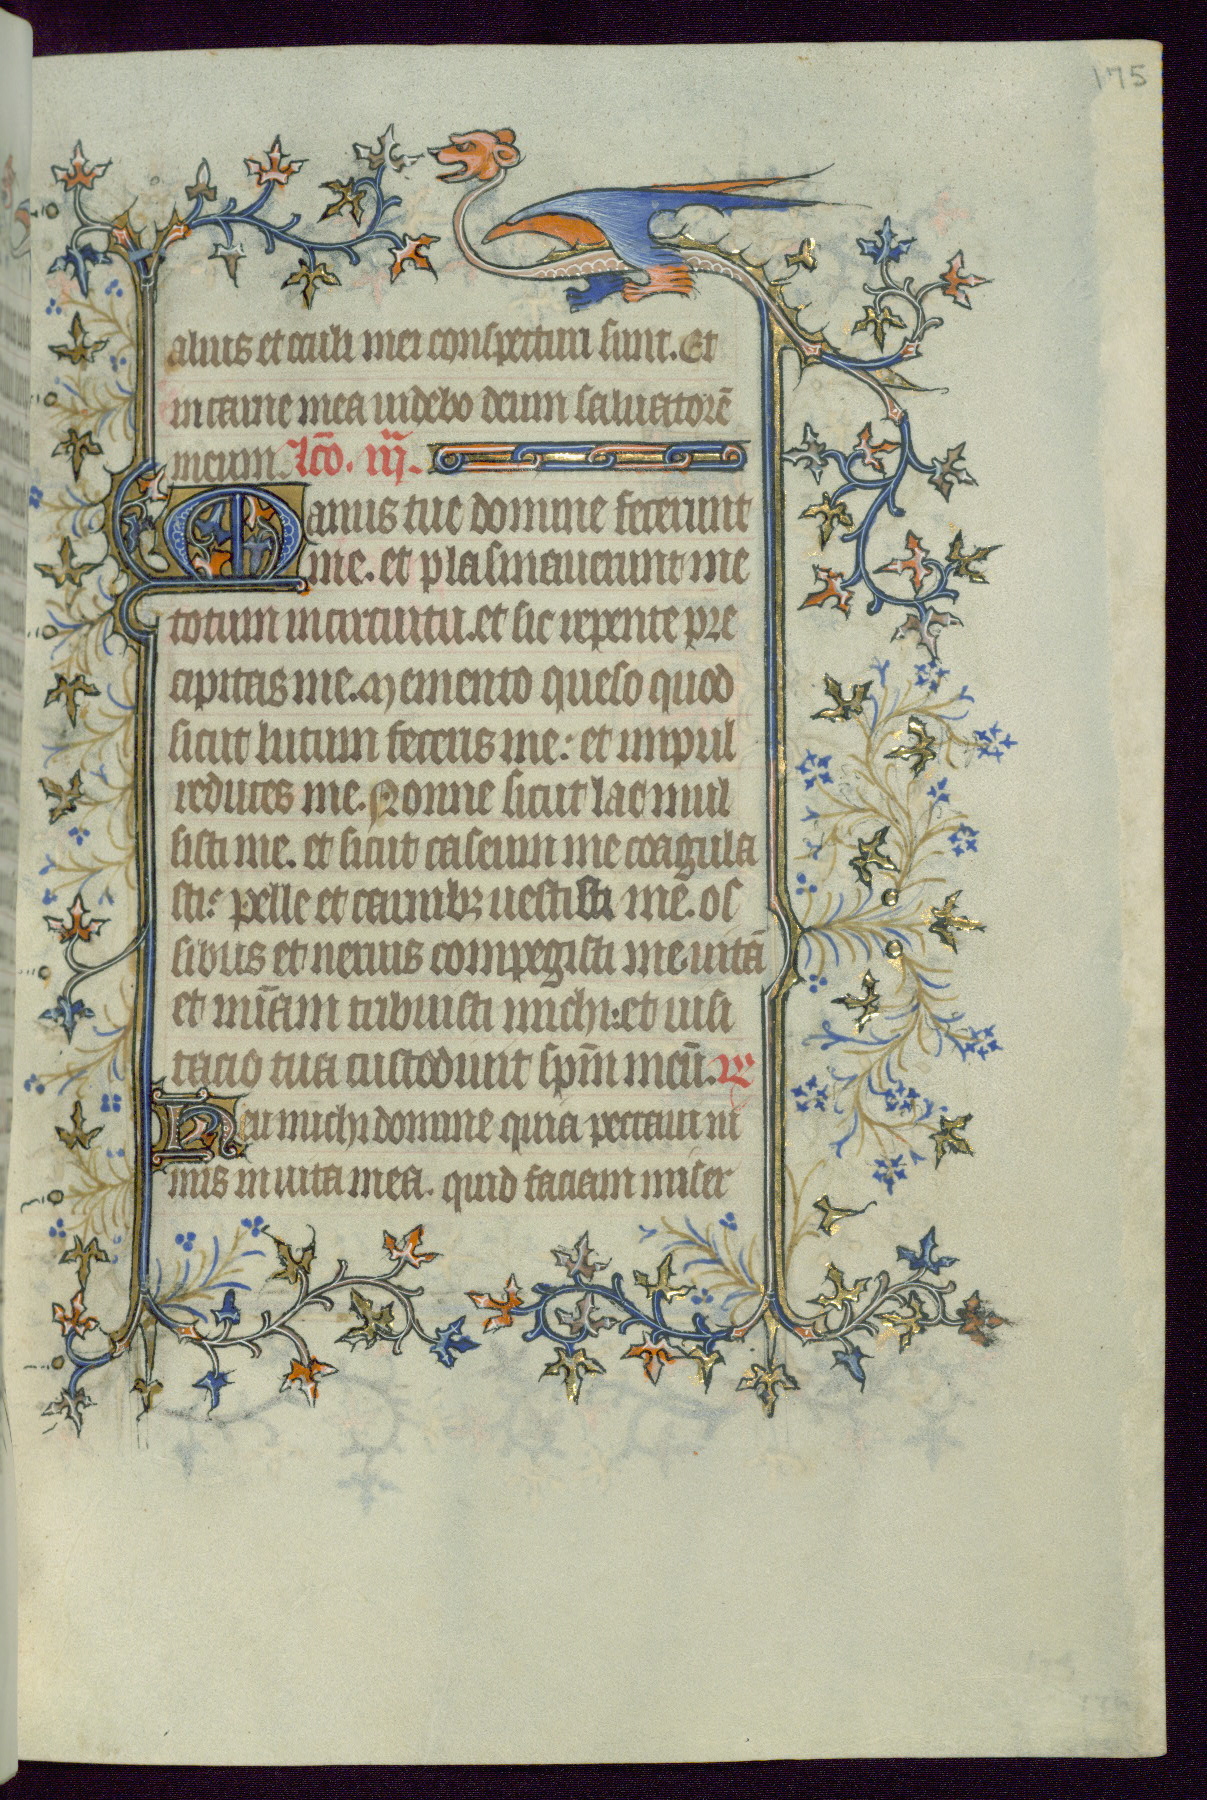 175
alius et oculi mei conspecturi sunt. Et
in carne mea uidebo deum saluatorē
meum. Lc̄o. iij.
Manus tue domine fecerunt
me. et plasmauerunt me
totum in circuitu. et sic repente pre
cipitas me. Memento queso quod
sicut lutum feceris me: et in pul
reduces me. Nonne sicut lac mul
sisti me. et sicut caseum me coagula
sti: pelle et carnibꝫ uestisti me. os
sibus et neruis compegisti me. uitā
et mīam tribuisti michi: et uisi
tacio tua custodiuit spm̄ meū. ℟
Heu michi domine quia peccaui ni
mis in uita mea. quid faciam miser